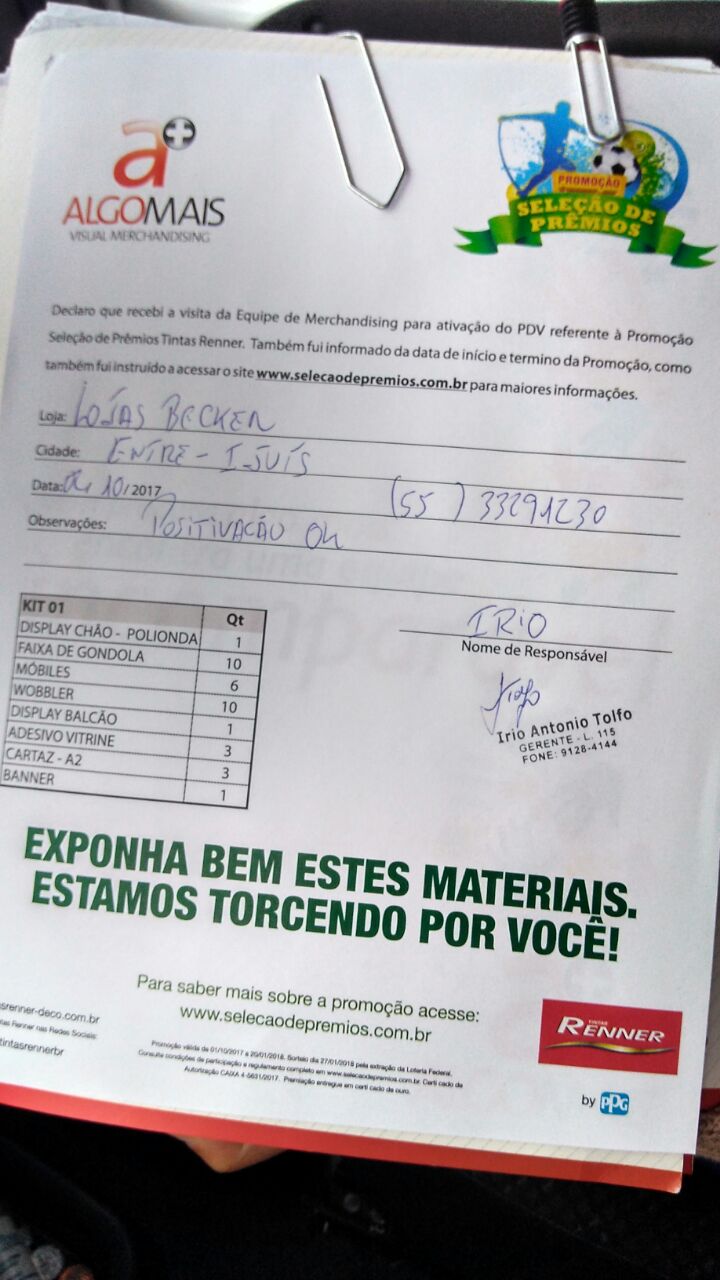 a+
ALGOMAIS
VISUAL MERCHANDISING
PROMOÇÃO
SELEÇÃO DE
PRÊMIOS
Declaro que recebi a visita da Equipe de Merchandising para ativação do PDV referente à Promoção
Seleção de Prêmios Tintas Renner. Também fui informado da data de início e termino da Promoção, como
também fui instruído a acessar o site www.selecaodepremios.com.br para maiores informações.
Loja: LOJAS BECKER
Cidade: ENTRE-IJUÍS
Data: 10/2017 (55) 33291230
Observações: POSITIVAÇÃO OK
IRIO
Nome de Responsável
Irio Antonio Tolfo
GERENTE - L. 115
FONE: 9128-4144
KIT 01 Qt
DISPLAY CHÃO - POLIONDA 1
FAIXA DE GONDOLA 10
MÓBILES 6
WOBBLER 10
DISPLAY BALCÃO 1
ADESIVO VITRINE 3
CARTAZ - A2 3
BANNER 1
EXPONHA BEM ESTES MATERIAIS.
ESTAMOS TORCENDO POR VOCÊ!
Para saber mais sobre a promoção acesse:
www.selecaodepremios.com.br
srenner-deco.com.br
tas Renner nas Redes Sociais:
tintasrennerbr
Promoção válida de 01/10/2017 a 20/01/2018. Sorteio dia 27/01/2018 pela extração da Loteria Federal.
Consulte condições de participação e regulamento completo em www.selecaodepremios.com.br. Certi cado de
Autorização CAIXA 4-5631/2017. Premiação entregue em certi cado de ouro.
TINTAS
RENNER
by PPG